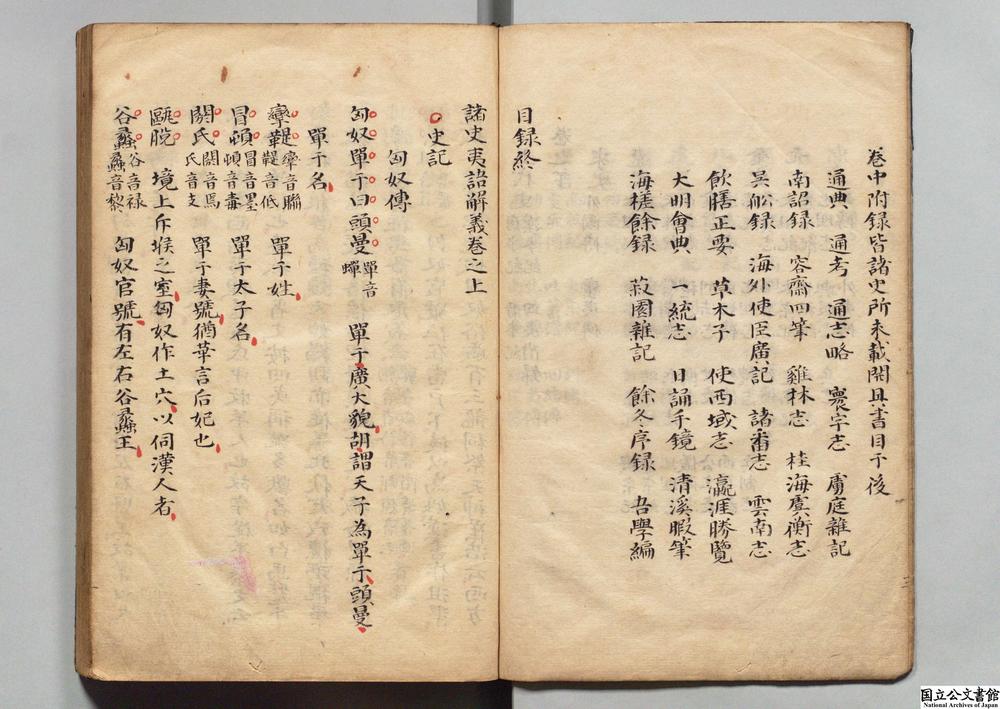 卷中附録皆諸史所未載開具書目于後
通典　通考　通志略　寰宇志　虜庭雜記
南詔録　容齋四筆　雞林志　桂海虞衡志
吳船録　海外使臣廣記　諸番志　雲南志
飲膳正要　草木子　使西域志　瀛涯勝覽
大明會典　一統志　日誦手鏡　清溪暇筆
海槎餘録　菽園雜記　餘冬序録　吾學編
目録終
諸史夷語解義卷之上
史記
匈奴傳
匈奴單于曰頭曼單音蟬　單于廣大貌胡謂天子為單于頭曼
單于名
攣鞮攣音聯鞮音低　單于姓
冒頓冒音墨頓音毒　單于太子名
閼氏閼音焉氏音支　單于妻號猶華言后妃也
甌脫　境上斥堠之室匈奴作土穴以伺漢人者
谷蠡谷音禄蠡音黎　匈奴官號有左右谷蠡王
国立公文書館
National Archives of Japan